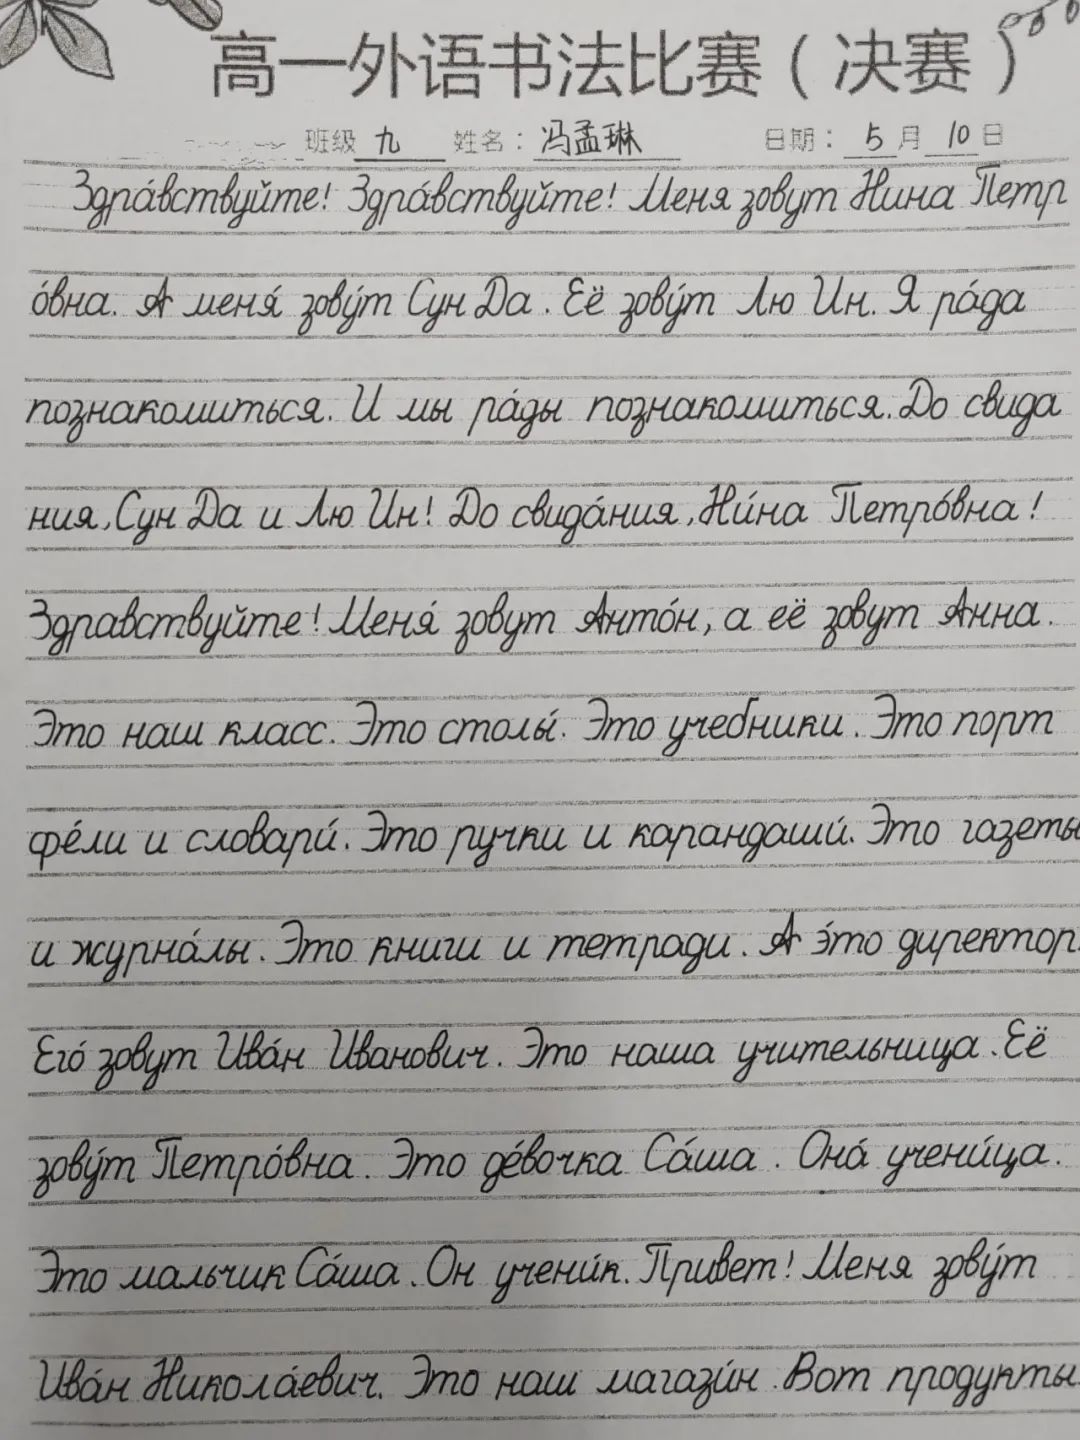 高一外语书法比赛（决赛）
班级 九 姓名：冯孟琳 日期：5月10日
Здра́вствуйте! Здра́вствуйте! Меня зовут Нина Петр
о́вна. А меня́ зову́т Сун Да. Её зову́т Лю Ин. Я ра́да
познакомиться. И мы ра́ды познакомиться. До свида
ния, Сун Да и Лю Ин! До свида́ния, Ни́на Петро́вна!
Здравствуйте! Меня́ зовут Анто́н, а её зовут Анна.
Это наш класс. Это столы́. Это учебники. Это порт
фе́ли и словари́. Это ручки и карандаши́. Это газеты
и журна́лы. Это книги и тетради. А э́то директор.
Его́ зовут Ива́н Иванович. Это наша учительница. Её
зову́т Петро́вна. Это де́вочка Са́ша. Она́ учени́ца.
Это мальчик Са́ша. Он учени́к. Привет! Меня зову́т
Ива́н Никола́евич. Это наш магази́н. Вот продукты.